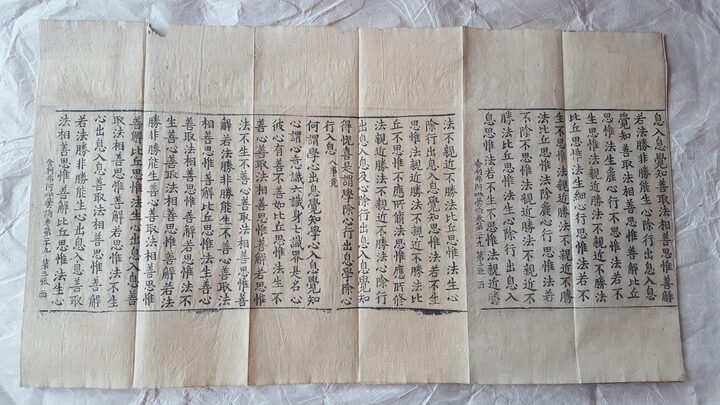 息入息覺知善取法相善思惟善解
若法勝非勝能生心除行出息入息
覺知善取法相善思惟善解比丘
思惟法生麁心行不思惟法若不
生思惟法生細心行思惟法若不
生不思惟法親近勝法不親近不勝
法比丘思惟法除麁心行思惟法若
不除不思惟法親近勝法不親近不
勝法比丘思惟法生心除行出息入
息思惟法若不生不思惟法親近勝
舍利弗阿毗曇論卷第二十九 第二張 西
法不親近不勝法比丘思惟法生心
除行出息入息覺知思惟法若不生
思惟法親近勝法不親近不勝法比
丘不思惟不應所脩法思惟應所脩
法親近勝法不親近不勝法心除行
出息入息及心除行出息入息覺知
得悅喜是謂學除心行出息學除心
行入息 八事竟
何謂學心出息覺知學心入息覺知
心謂心意識六識身七識界是名心
彼心有善不善如比丘思惟法生不
善心善取法相善思惟善解若思惟
法不生不善心善取法相善思惟善
解若法勝非勝能生不善心善取法
相善思惟善解比丘思惟法生善心
善取法相善思惟善解若思惟法不
生善心善取法相善思惟善解若法
勝非勝能生善心善取法相善思惟
善解比丘思惟法生心出息入息善
取法相善思惟善解若思惟法不生
心出息入息善取法相善思惟善解
若法勝非勝能生心出息入息善取
法相善思惟善解比丘思惟法生心
舍利弗阿毗曇論卷第二十九 第三張 西